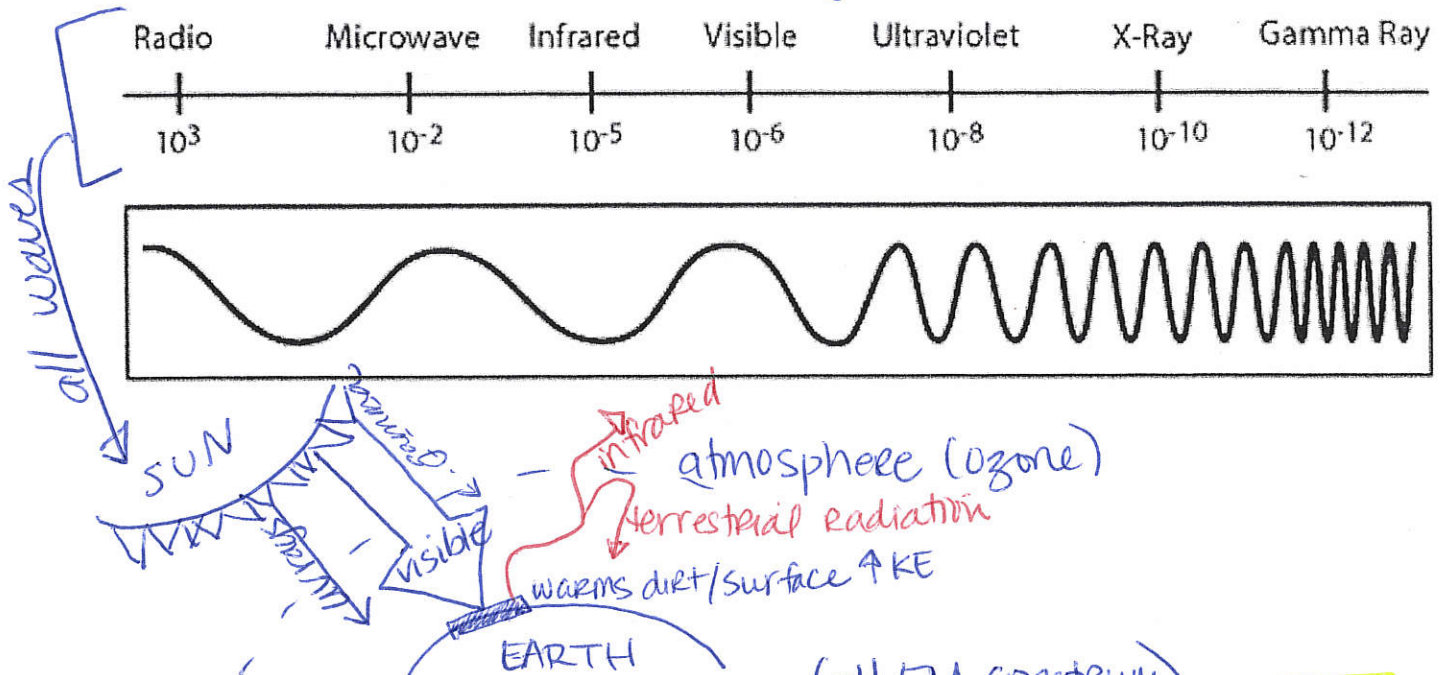 Radio Microwave Infrared Visible Ultraviolet X-Ray Gamma Ray
10³ 10⁻² 10⁻⁵ 10⁻⁶ 10⁻⁸ 10⁻¹⁰ 10⁻¹²
all waves
SUN
Gamma
infrared
atmosphere (ozone)
terrestrial radiation
visible
UV rays
warms dirt/surface ↑ KE
EARTH
spectrum)